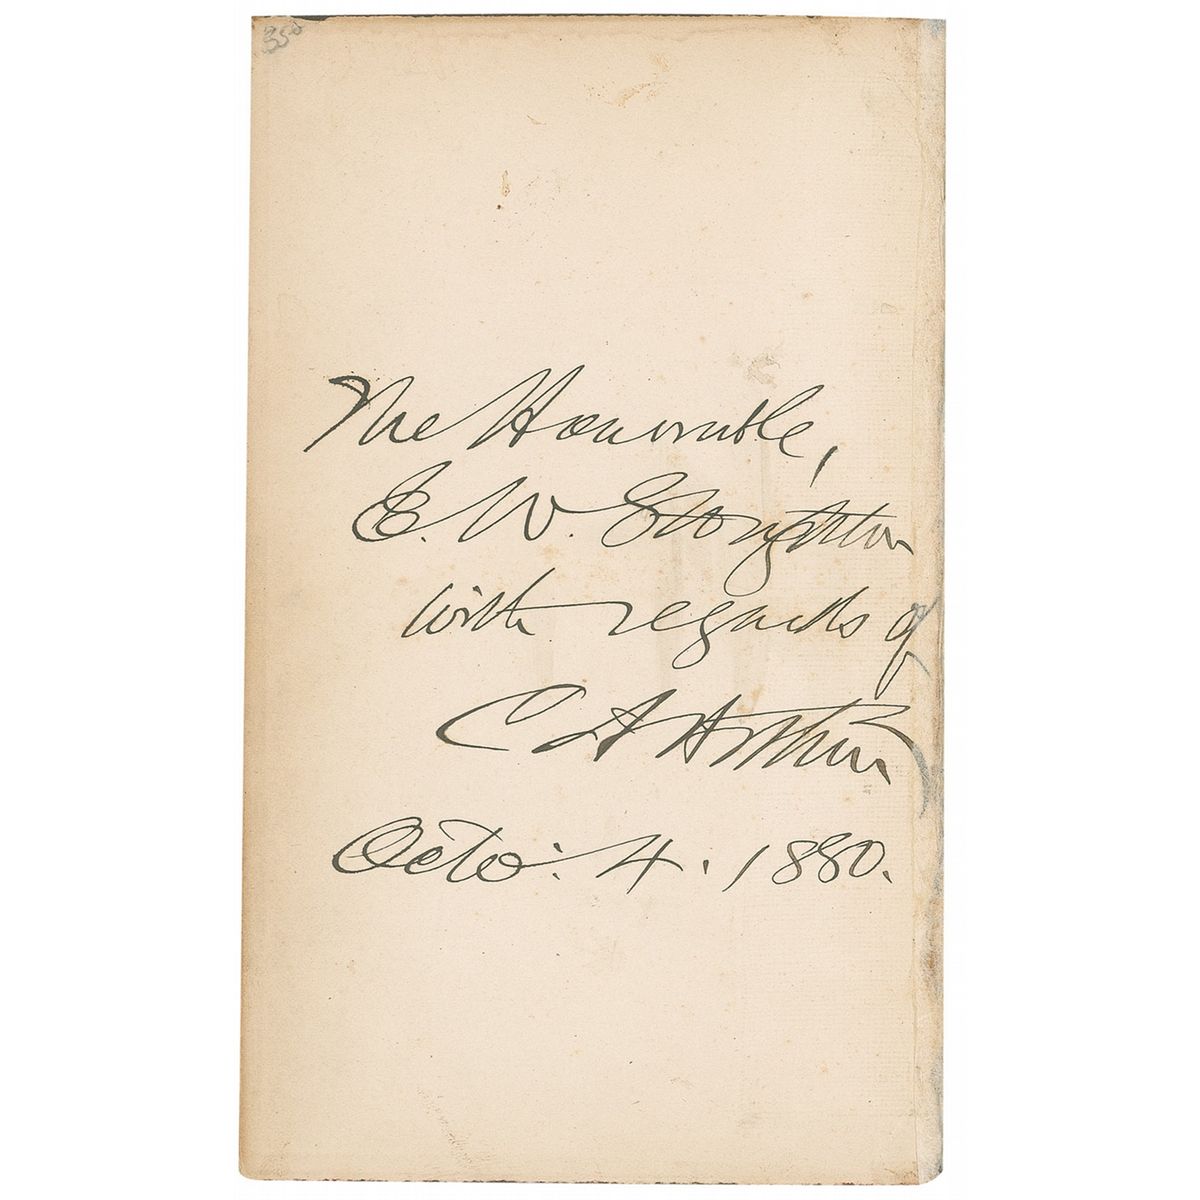 350
The Honorable,
E. W. Stoughton
with regards of
C A Arthur
Octo: 4. 1880.